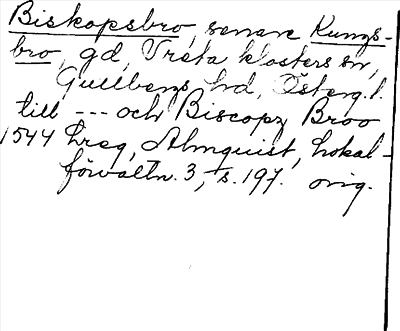 Biskopsbro, senare Kungs-
bro, gd, Vreta klosters sn,
Gullbergs hd, Österg.l.
till --- och Biscopz Broo
1544 hreg, Almquist, Lokal-
förvaltn. 3, s. 197. orig.